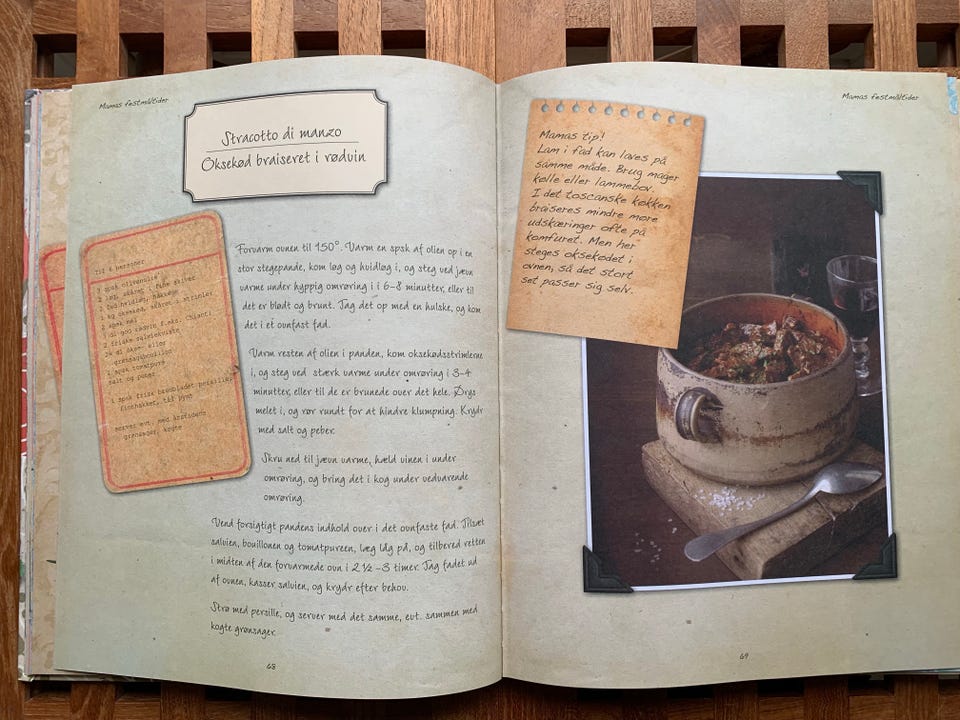 Mamas festmåltider
Stracotto di manzo
Oksekød braiseret i rødvin
Til 6 personer
spsk olivenolie
løg, skåret i fine skiver
fed hvidløg, hakkede
kg oksekød, skåret i strimler
2 spsk mel
dl god rødvin f.eks. Chianti
2 friske salviekviste
dl okse- eller
grønsagsbouillon
1 spsk tomatpuré
salt og peber
1 spsk frisk bredbladet persille,
finthakket, til pynt
server evt. med årstidens
grønsager, kogte
Forvarm ovnen til 150°. Varm en spsk af olien op i en
stor stegepande, kom løg og hvidløg i, og steg ved jævn
varme under hyppig omrøring i i 6-8 minutter, eller til
det er blødt og brunt. Tag det op med en hulske, og kom
det i et ovnfast fad.
Varm resten af olien i panden, kom oksekødsstrimlerne
i, og steg ved stærk varme under omrøring i 3-4
minutter, eller til de er brunede over det hele. Drys
melet i, og rør rundt for at hindre klumpning. Krydr
med salt og peber.
Skru ned til jævn varme, hæld vinen i under
omrøring, og bring det i kog under vedvarende
omrøring.
Vend forsigtigt pandens indhold over i det ovnfaste fad. Tilsæt
salvien, bouillonen og tomatpureen, læg låg på, og tilbered retten
i midten af den forvarmede ovn i 2½-3 timer. Tag fadet ud
af ovnen, kasser salvien, og krydr efter behov.
Strø med persille, og server med det samme, evt. sammen med
kogte grønsager.
68
Mamas festmåltider
Mamas tip!
Lam i fad kan laves på
samme måde. Brug mager
kølle eller lammebov.
I det toscanske køkken
braiseres mindre møre
udskæringer ofte på
komfuret. Men her
steges oksekødet i
ovnen, så det stort
set passer sig selv.
69